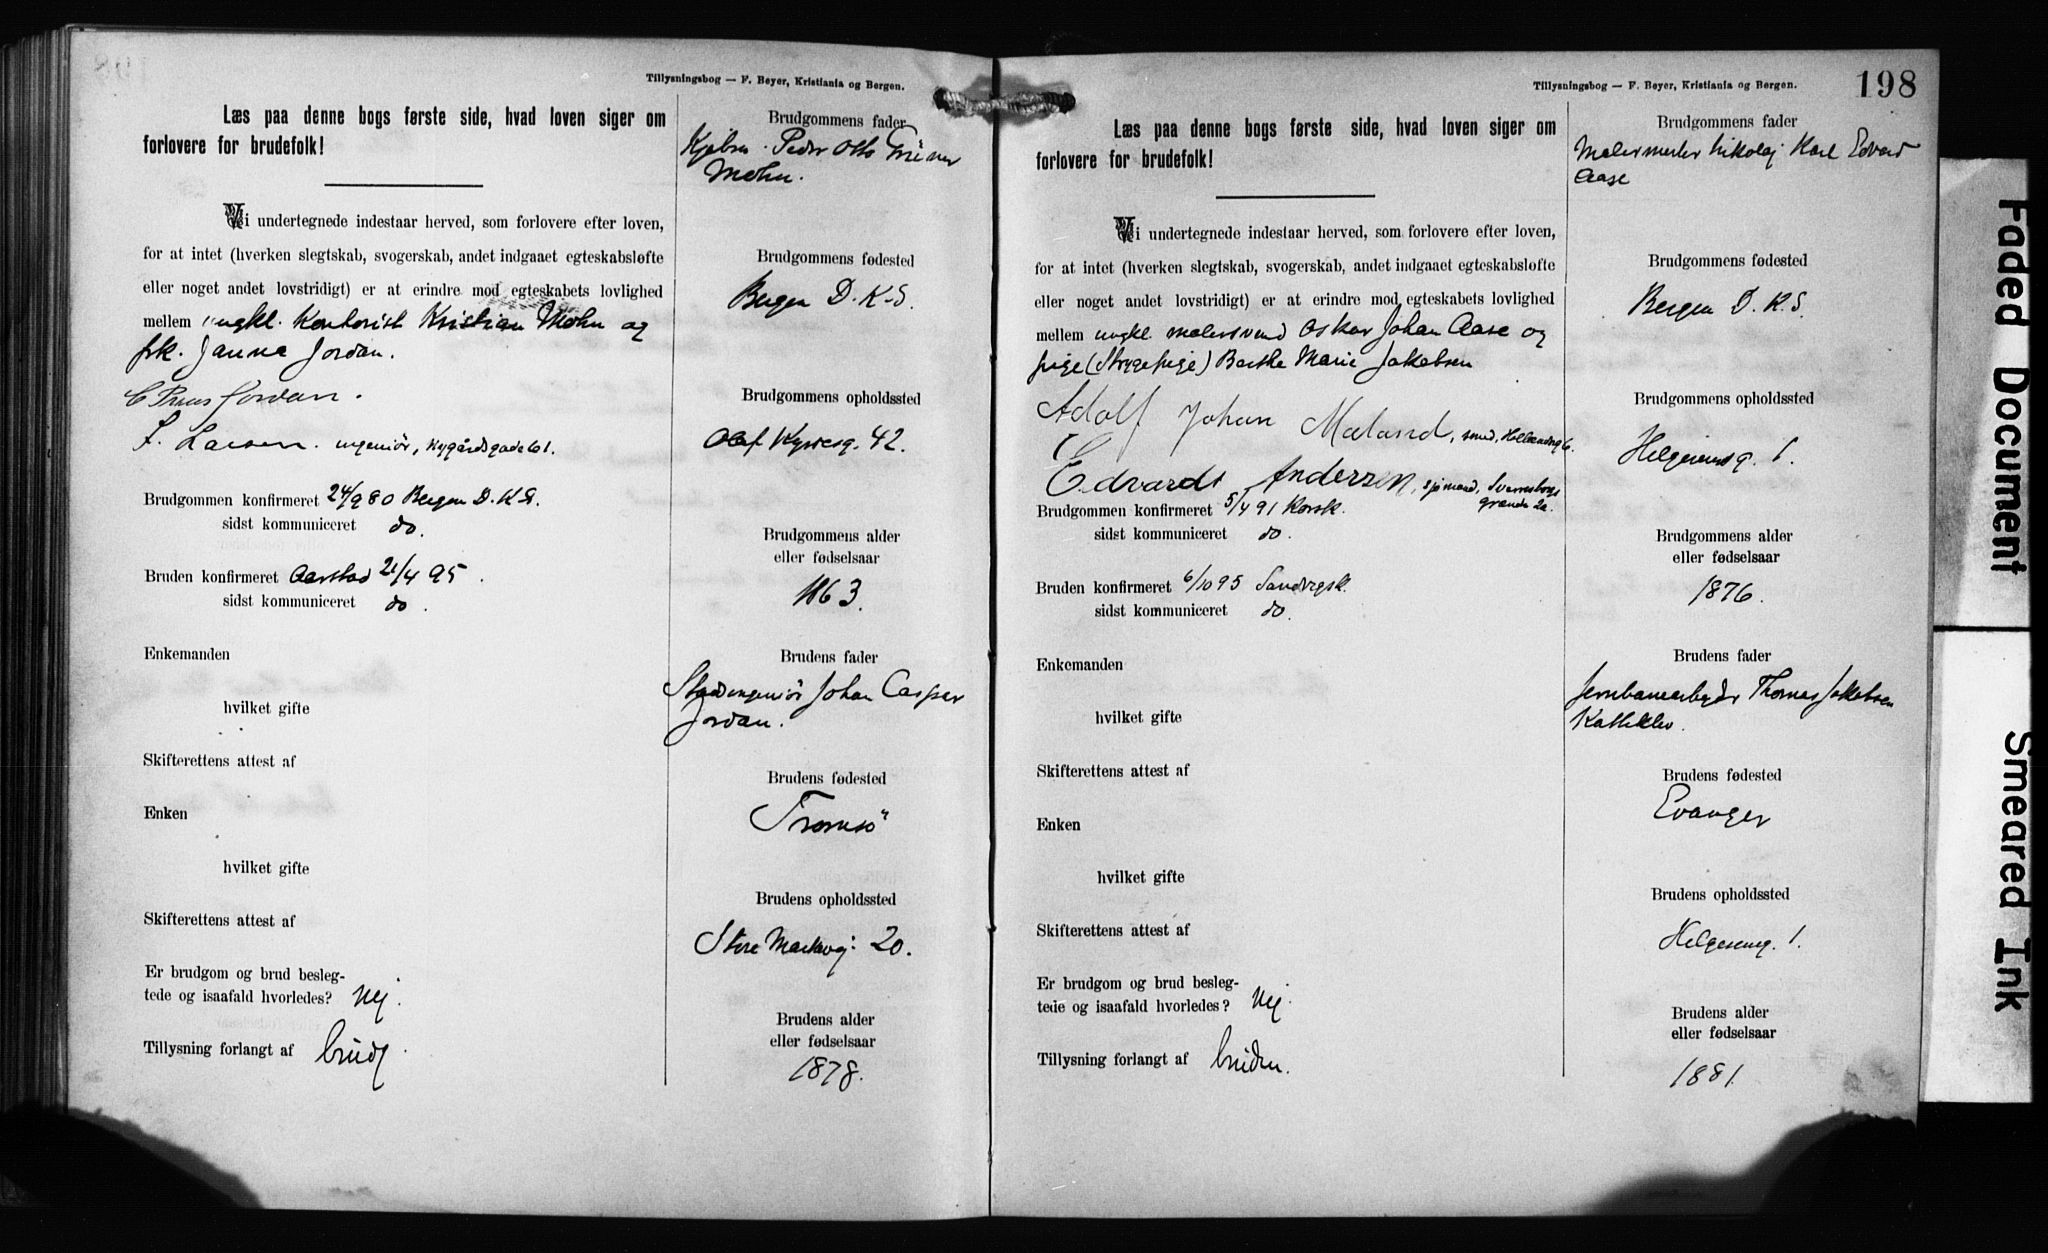 Tillysningsbog — F. Beyer, Kristiania og Bergen.
Læs paa denne bogs første side, hvad loven siger om
forlovere for brudefolk!
Vi undertegnede indestaar herved, som forlovere efter loven,
for at intet (hverken slegtskab, svogerskab, andet indgaaet egteskabsløfte
eller noget andet lovstridigt) er at erindre mod egteskabets lovlighed
mellem ungkl. Kontorist Kristian Mohn og
frk. Janna Jordan.
Jordan.
L. Larsen. ingeniör, Nygårdsgade 61.
Brudgommen konfirmeret 24/9 80 Bergen D.K.S.
sidst kommuniceret do.
Bruden konfirmeret Aarstad 21/4 95.
sidst kommuniceret do.
Enkemanden
hvilket gifte
Skifterettens attest af
Enken
hvilket gifte
Skifterettens attest af
Er brudgom og brud besleg-
tede og isaafald hvorledes? Nej.
Tillysning forlangt af brudg.
Brudgommens fader
Kjøbm. Peder Otto Grüner
Mohn.
Brudgommens fødested
Bergen D.K.S.
Brudgommens opholdssted
Olaf Kyrresg. 42.
Brudgommens alder
eller fødselsaar
1863.
Brudens fader
Stadsingeniör Johan Casper
Jordan.
Brudens fødested
Tromsö
Brudens opholdssted
Store Markevej 20.
Brudens alder
eller fødselsaar
1878.
Tillysningsbog — F. Beyer, Kristiania og Bergen.
198
Læs paa denne bogs første side, hvad loven siger om
forlovere for brudefolk!
Vi undertegnede indestaar herved, som forlovere efter loven,
for at intet (hverken slegtskab, svogerskab, andet indgaaet egteskabsløfte
eller noget andet lovstridigt) er at erindre mod egteskabets lovlighed
mellem ungkl. malersvend Oskar Johan Aase og
pige (Strygepige) Berthe Marie Jakobsen
Adolf Johan Mæland, smed,
Edvardt Anderzen, sjømand,
Brudgommen konfirmeret 5/4 91 Korsk.
sidst kommuniceret do.
Bruden konfirmeret 6/10 95 Sandvigsk.
sidst kommuniceret do.
Enkemanden
hvilket gifte
Skifterettens attest af
Enken
hvilket gifte
Skifterettens attest af
Er brudgom og brud besleg-
tede og isaafald hvorledes? Nej.
Tillysning forlangt af bruden.
Brudgommens fader
Malermester Nikolaj Karl Edvard
Aase
Brudgommens fødested
Bergen D.K.S.
Brudgommens opholdssted
Helgesensg. 1.
Brudgommens alder
eller fødselsaar
1876.
Brudens fader
Jernbanearbejder Thomas Jakobsen
Brudens fødested
Evanger
Brudens opholdssted
Helgeseng. 1.
Brudens alder
eller fødselsaar
1881.
Faded Document
Smeared Ink